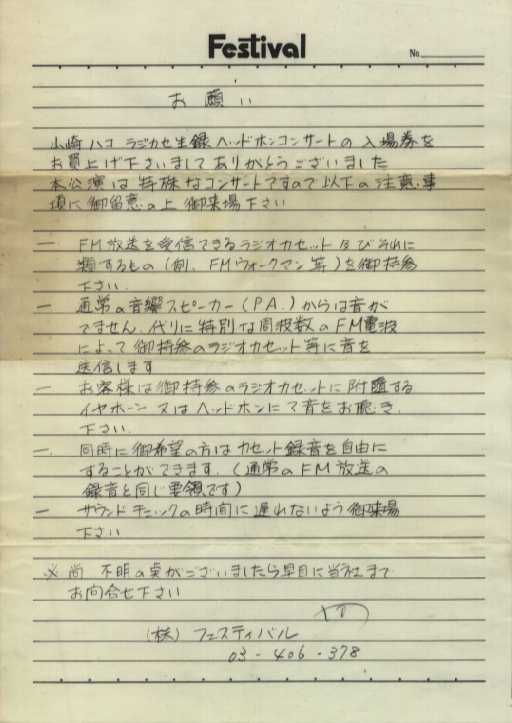 Festival
No.
お願い
山崎ハコ ラジカセ生録ヘッドホンコンサートの入場券を
お買上げ下さいましてありがとうございました
本公演は特殊なコンサートですので以下の注意事
項に御留意の上 御来場下さい
一 FM放送を受信できるラジオカセット及びそれに
類するもの(例、FMウォークマン等)を御持参
下さい.
一 通常の音響スピーカー(P.A.)からは音が
でません.代りに特別な周波数のFM電波
によって御持参のラジオカセット等に音を
送信します
一 お客様は御持参のラジオカセットに附随する
イヤホーン又はヘッドホンにて音をお聴き.
下さい.
一. 同時に御希望の方はカセット録音を自由に
することができます.(通常のFM放送の
録音と同じ要領です)
一 サウンドチェックの時間に遅れないよう御来場
下さい
※尚 不明の点がございましたら早目に当社まで
お問合せ下さい
(株)フェスティバル
03-406-378